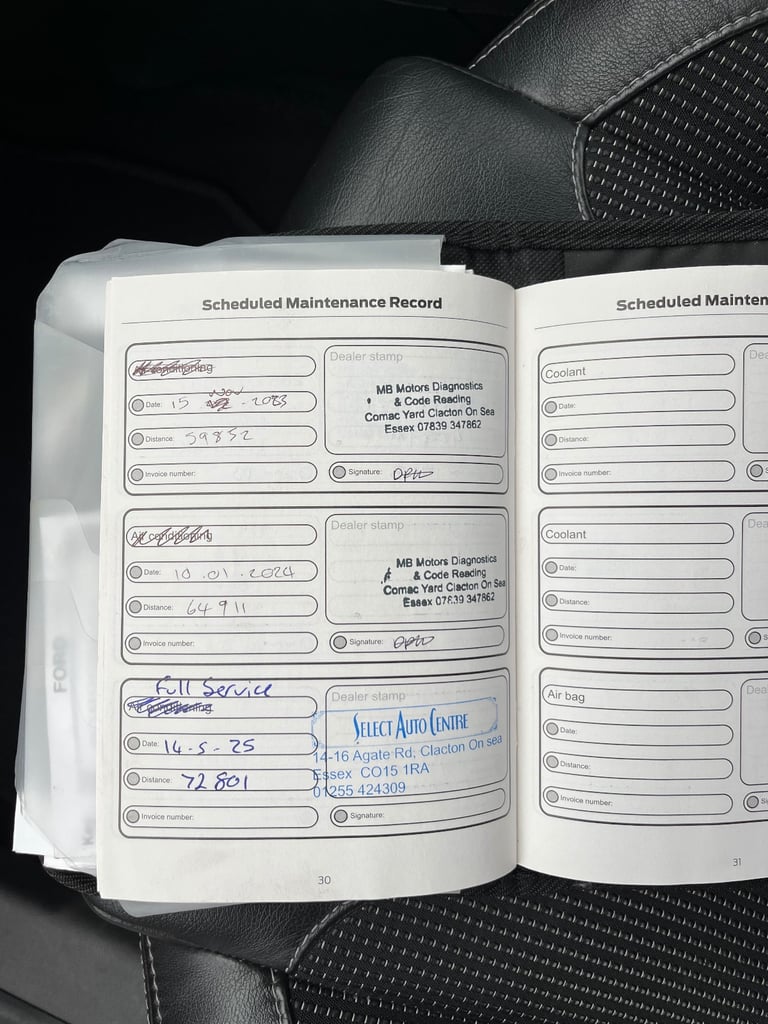 Scheduled Maintenance Record
Air conditioning
Date: 15 Nov - 2023
Distance: 59852
Invoice number:
Dealer stamp
MB Motors Diagnostics
& Code Reading
Comac Yard Clacton On Sea
Essex 07839 347862
Signature:
Air conditioning
Date: 10.01.2024
Distance: 64911
Invoice number:
Dealer stamp
MB Motors Diagnostics
& Code Reading
Comac Yard Clacton On Sea
Essex 07839 347862
Signature:
Full Service
Air conditioning
Date: 14-5-25
Distance: 72801
Invoice number:
Dealer stamp
SELECT AUTO CENTRE
14-16 Agate Rd, Clacton On sea
Essex CO15 1RA
01255 424309
Signature:
30
Scheduled Mainten
Coolant
Date:
Distance:
Invoice number:
Dea
S
Coolant
Date:
Distance:
Invoice number:
Dea
S
Air bag
Date:
Distance:
Invoice number:
Dea
Si
31
FORD